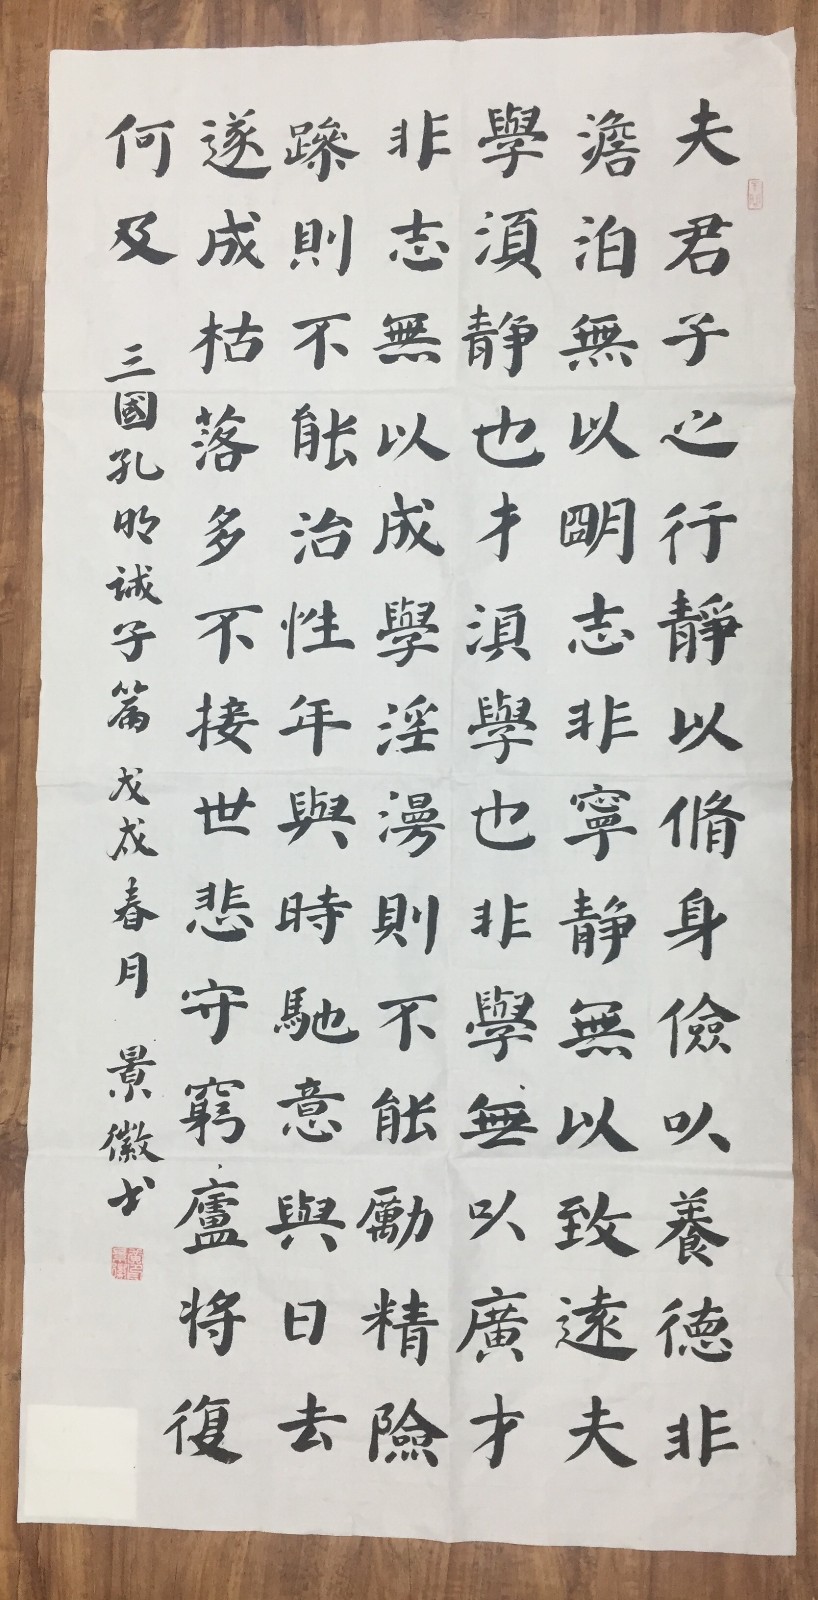 夫君子之行靜以脩身儉以養德非
澹泊無以明志非寧靜無以致遠夫
學須靜也才須學也非學無以廣才
非志無以成學淫漫則不能勵精險
躁則不能治性年與時馳意與日去
遂成枯落多不接世悲守窮廬將復
何及 三國孔明誡子篇 戊戌春月 景徽书